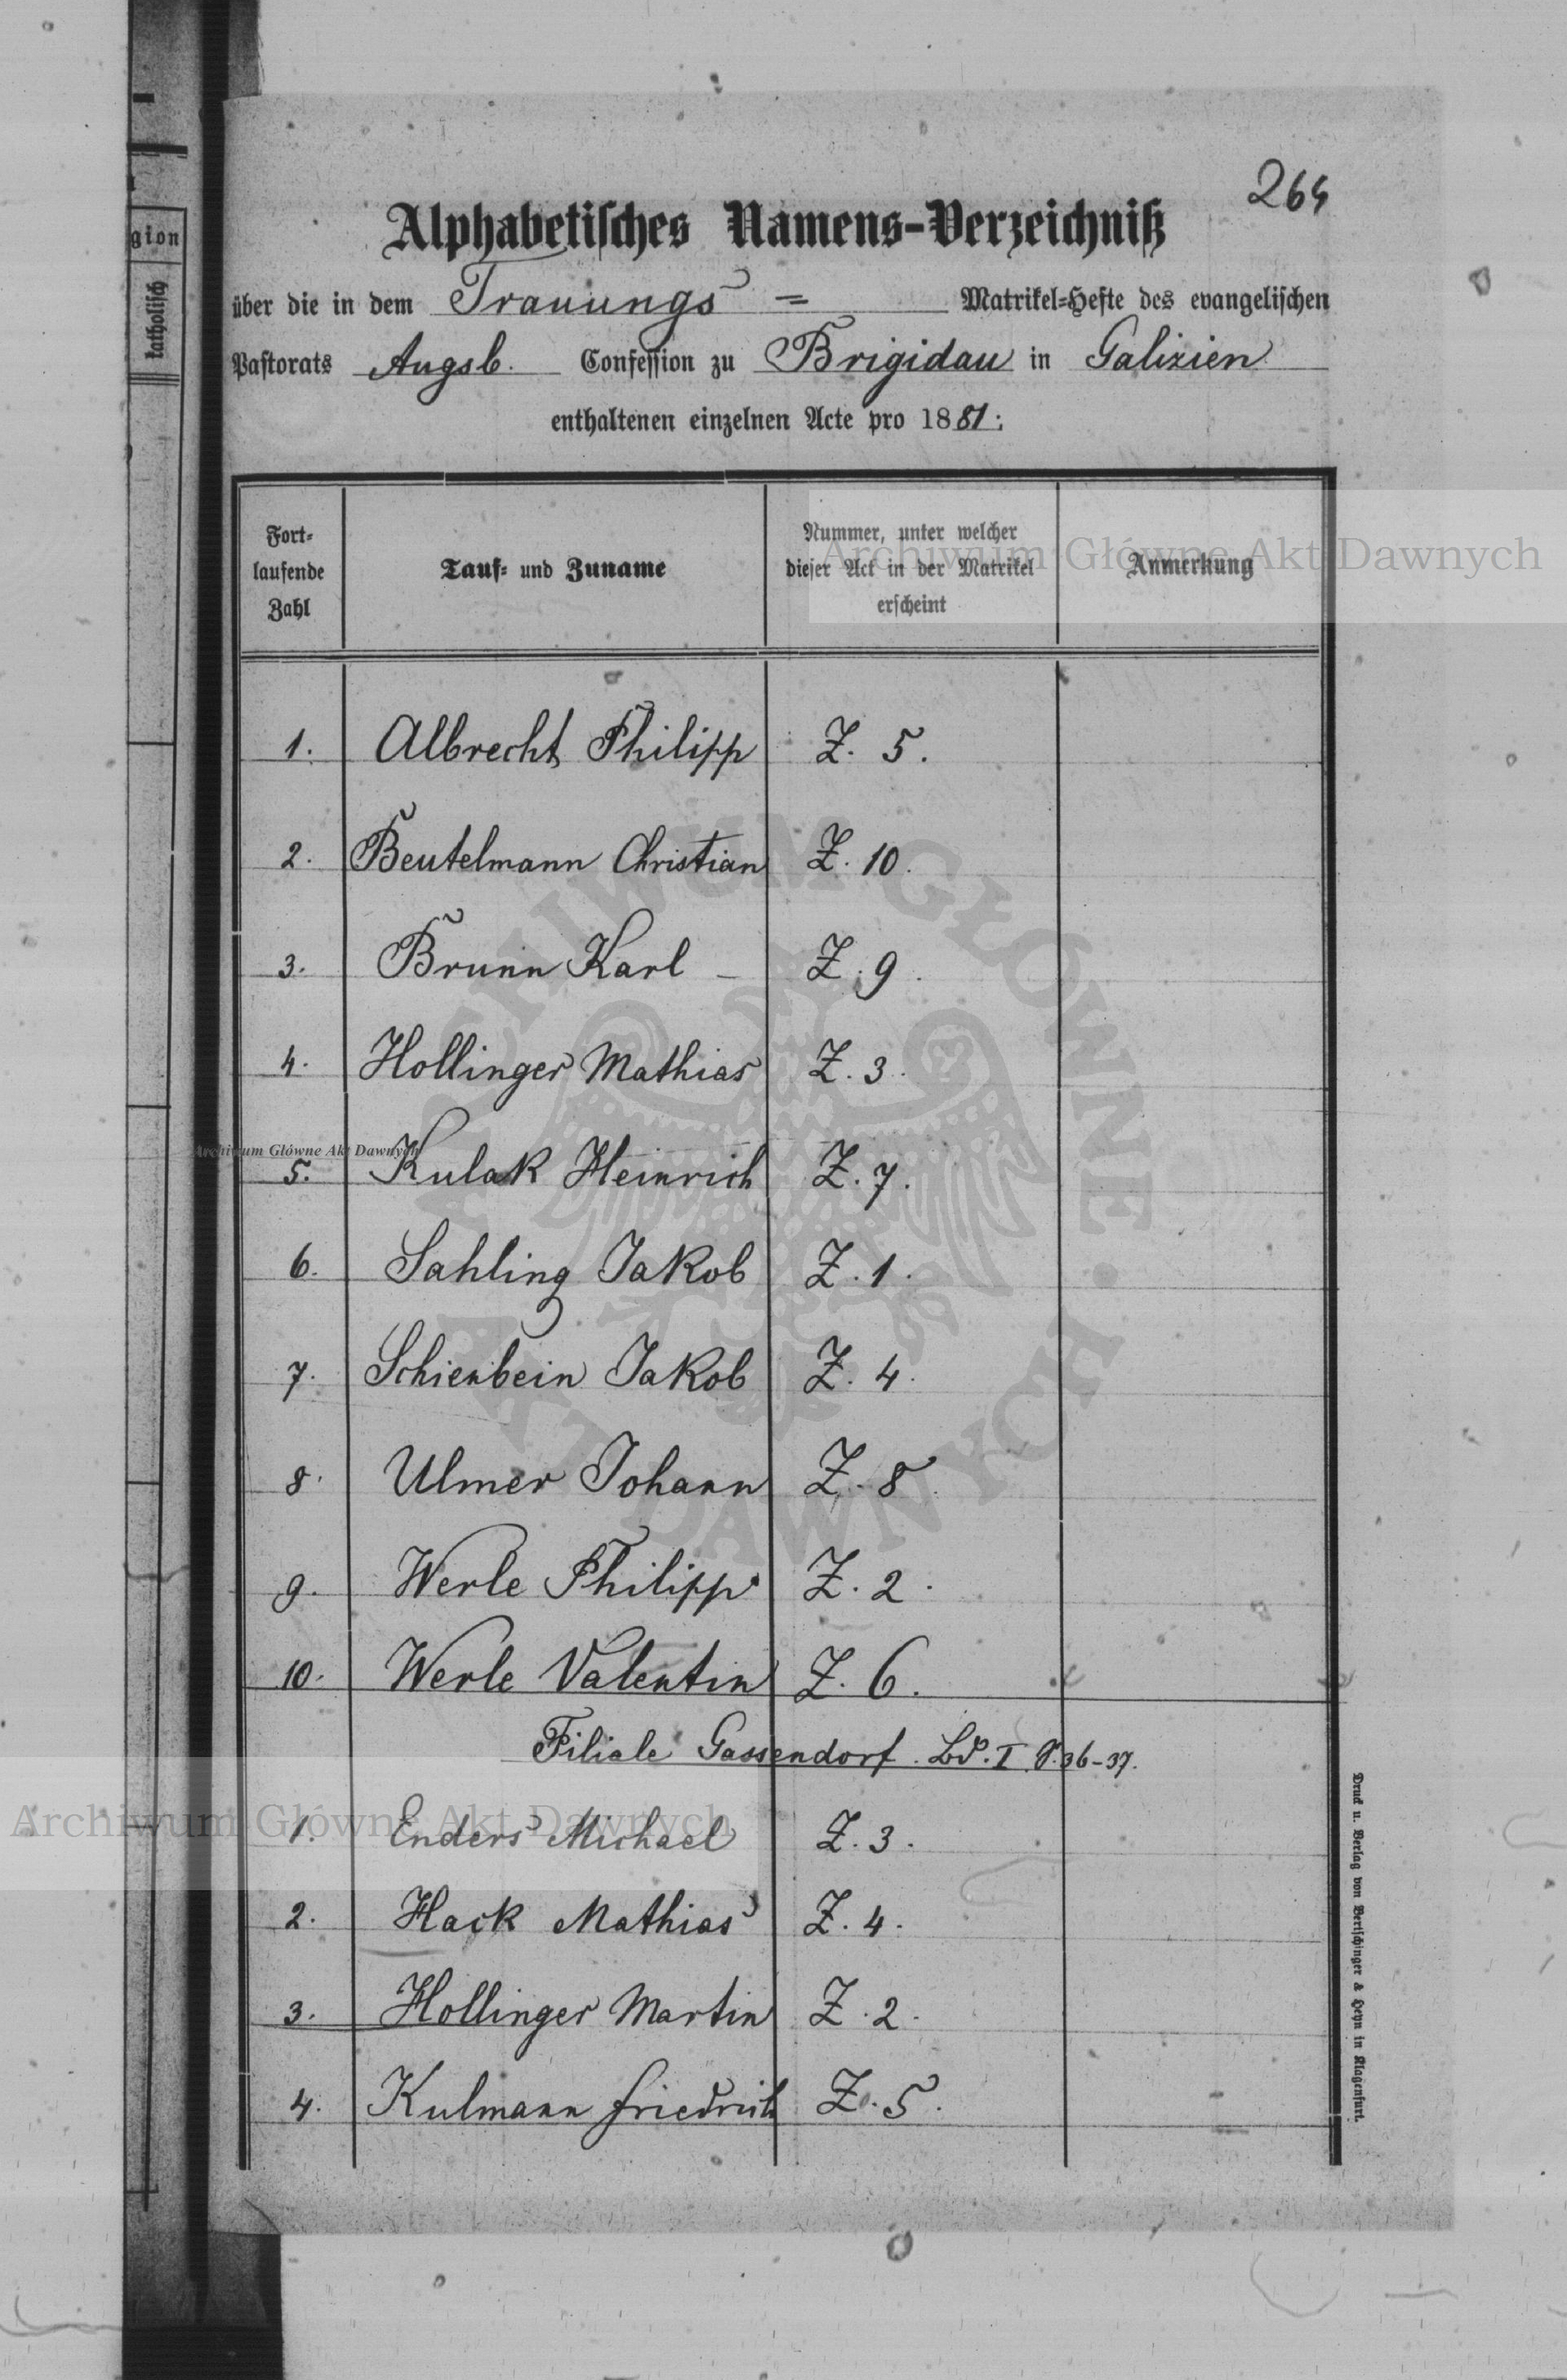 264
Alphabetisches Namens-Verzeichniß
über die in dem Trauungs = Matrikel-Hefte des evangelischen
Pastorats Augsb. Confession zu Brigidau in Galizien
enthaltenen einzelnen Acte pro 1881.
Fort-
laufende
Zahl
Tauf- und Zuname
Nummer, unter welcher
dieser Act in der Matrikel
erscheint
Anmerkung
1. Albrecht Philipp Z. 5.
2. Beutelmann Christian Z. 10.
3. Brunn Karl – Z. 9.
4. Hollinger Mathias Z. 3.
5. Kulak Heinrich Z. 7.
6. Sahling Jakob Z. 1.
7. Schienbein Jakob Z. 4.
8. Ulmer Johann Z. 8.
9. Werle Philipp Z. 2.
10. Werle Valentin Z. 6.
Filiale Gassendorf. Bd. I S. 36-37.
1. Enders Michael Z. 3.
2. Hack Mathias Z. 4.
3. Hollinger Martin Z. 2.
4. Kulmann Friedrich Z. 5.
Druck u. Verlag von Bertschinger & Heyn in Klagenfurt.
gion
katholisch
Archiwum Główne Akt Dawnych
Archiwum Główne Akt Dawnych
Archiwum Główne Akt Dawnych
ARCHIWUM GŁÓWNE · AKT DAWNYCH